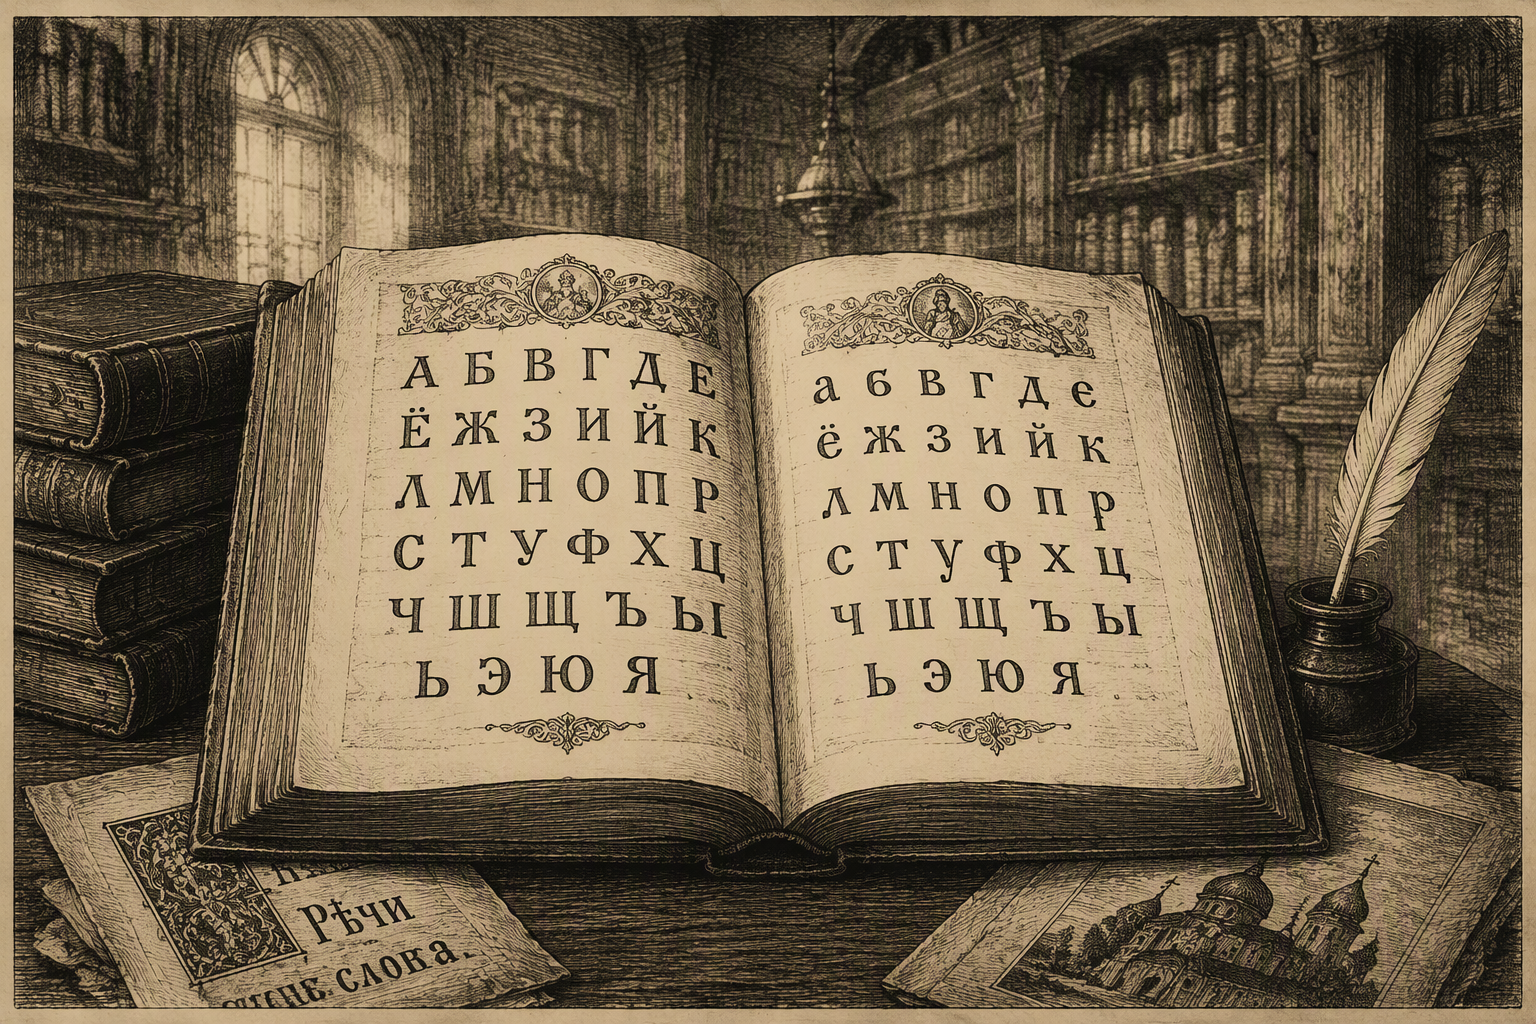 А Б В Г Д Е
Ё Ж З И Й К
Л М Н О П Р
С Т У Ф Х Ц
Ч Ш Щ Ъ Ы
Ь Э Ю Я
а б в г д е
ё ж з и й к
л м н о п р
с т у ф х ц
ч ш щ ъ ы
ь э ю я
Рѣчи
слова.